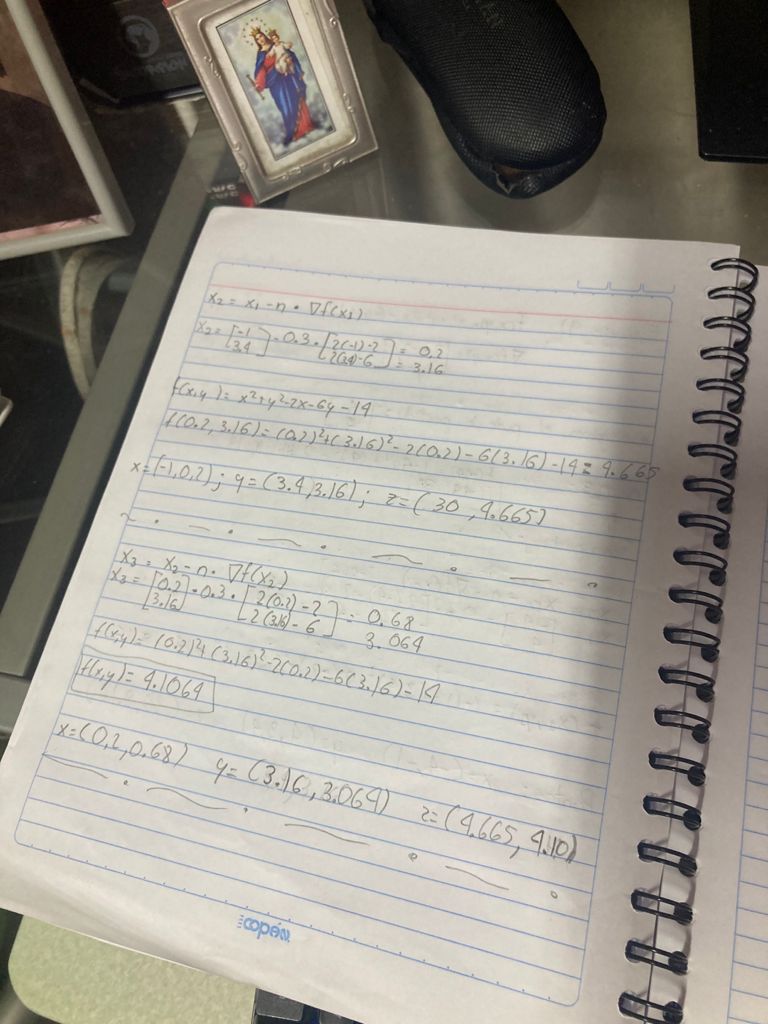 x₂ = x₁ - n · ∇f(x₁)
x₂ = [-1 3.4] - 0.3 · [2(-1)-2 2(3.4)-6] = 0.2 = 3.16
f(x,y) = x²+y²-2x-6y-14
f(0.2, 3.16) = (0.2)²+(3.16)²-2(0.2)-6(3.16)-14 = 4.665
x=(-1,0.2); y=(3.4,3.16); z=(30 ,4.665)
x₃ = x₂ - n · ∇f(x₂)
x₃ = [0.2 3.16] · 0.3 · [2(0.2)-2 2(3.16)-6] = 0.68 3.064
f(x,y) = (0.2)²+(3.16)²-2(0.2)-6(3.16)-14
f(x,y) = 4.1064
x=(0,2,0.68) y=(3.16,3.064) z=(4.665, 4.10)
copán